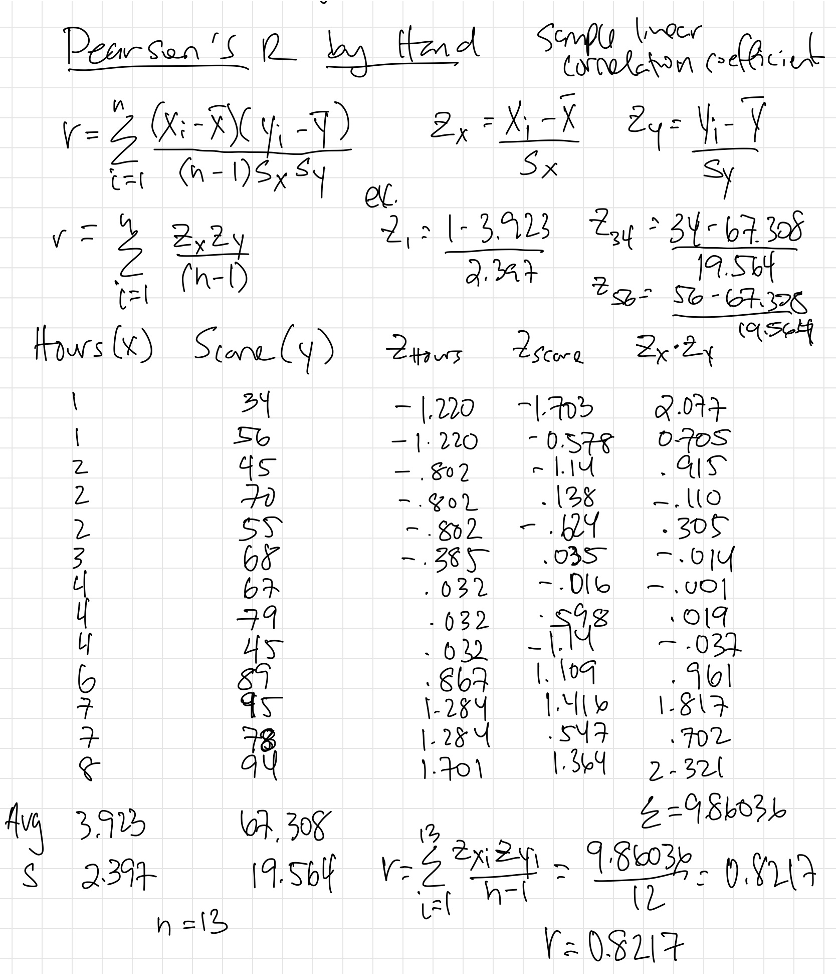 Pearson's R by Hand
Sample linear
correlation coefficient
r = Σ_{i=1}^{n} (Xi - X̄)(yi - Ȳ) / (n-1) Sx Sy
Zx = Xi - X̄ / Sx
Zy = Yi - Ȳ / Sy
r = Σ_{i=1}^{n} Zx Zy / (n-1)
ex.
Z1 = 1 - 3.923 / 2.397
Z34 = 34 - 67.308 / 19.564
Z56 = 56 - 67.308 / 19.564
Hours (x) Score (y) ZHours Zscore Zx·Zy
1 34 -1.220 -1.703 2.077
1 56 -1.220 -0.578 0.705
2 45 -.802 -1.14 .915
2 70 -.802 .138 -.110
2 55 -.802 -.624 .305
3 68 -.385 .035 -.014
4 67 .032 -.016 -.001
4 79 .032 .598 .019
4 45 .032 -1.14 -.037
6 89 .867 1.109 .961
7 95 1.284 1.416 1.817
7 78 1.284 .547 .702
8 94 1.701 1.364 2.321
Σ = 9.86036
Avg 3.923 67.308
S 2.397 19.564
n = 13
r = Σ_{i=1}^{13} Zxi Zyi / n-1 = 9.86036 / 12 = 0.8217
r = 0.8217